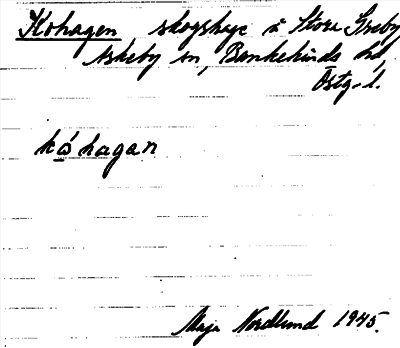 Kohagen skogshage å Stora Greby
Askeby sn, Bankekinds hd,
Östg. l.
kóhagan
Maja Nordlund 1945.